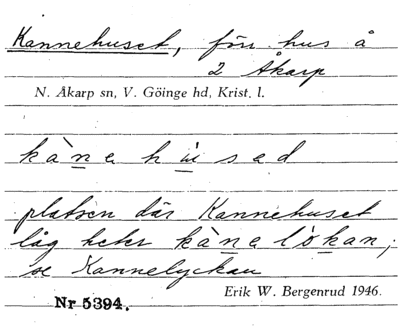 Kannehuset, förr hus å
2 Åkarp
N. Åkarp sn, V. Göinge hd, Krist. l.
kànehùsed
platsen där Kannehuset
låg heter kànelòkan;
se Kannelyckan
Erik W. Bergenrud 1946.
Nr 5394.